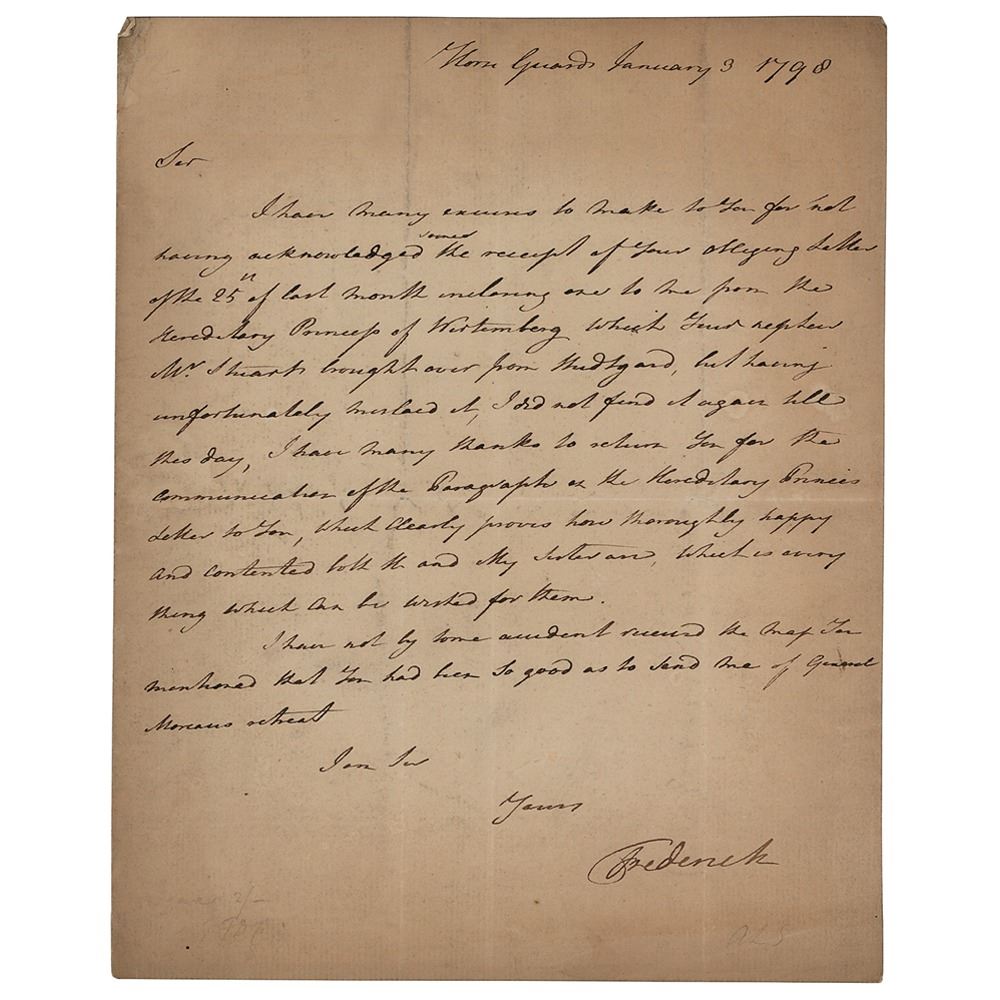 Horse Guards January 3 1798
Sir
I have many excuses to make to You for not
having acknowledged sooner the receipt of Your obliging Letter
of the 25th of last month inclosing one to me from the
Hereditary Princess of Wirtemberg which Your nephew
Mr Stuart brought over from Studtgard, but having
unfortunately mislaid it, I did not find it again till
this day, I have many thanks to return You for the
communication of the Paragraph in the Hereditary Princes
Letter to You, which clearly proves how thoroughly happy
and contented both He and My Sister are, which is every
thing which can be wished for them.
I have not by some accident received the map You
mentioned that You had been so good as to send me of General
Moreaus retreat
I am Sir
Yours
Frederick
ALS